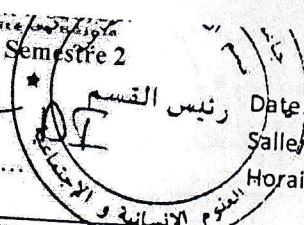 Semestre 2
رئيس القسم
Date
Salle
Horai
العلوم الإنسانية و الإجتماعية